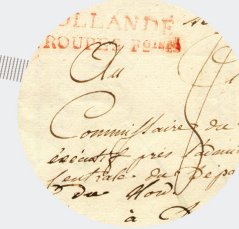 OLLANDE
ROUPES Fses
Au
Commissaire du
éxécutif près l'admi
Centrale du Dépa
du Nord
à